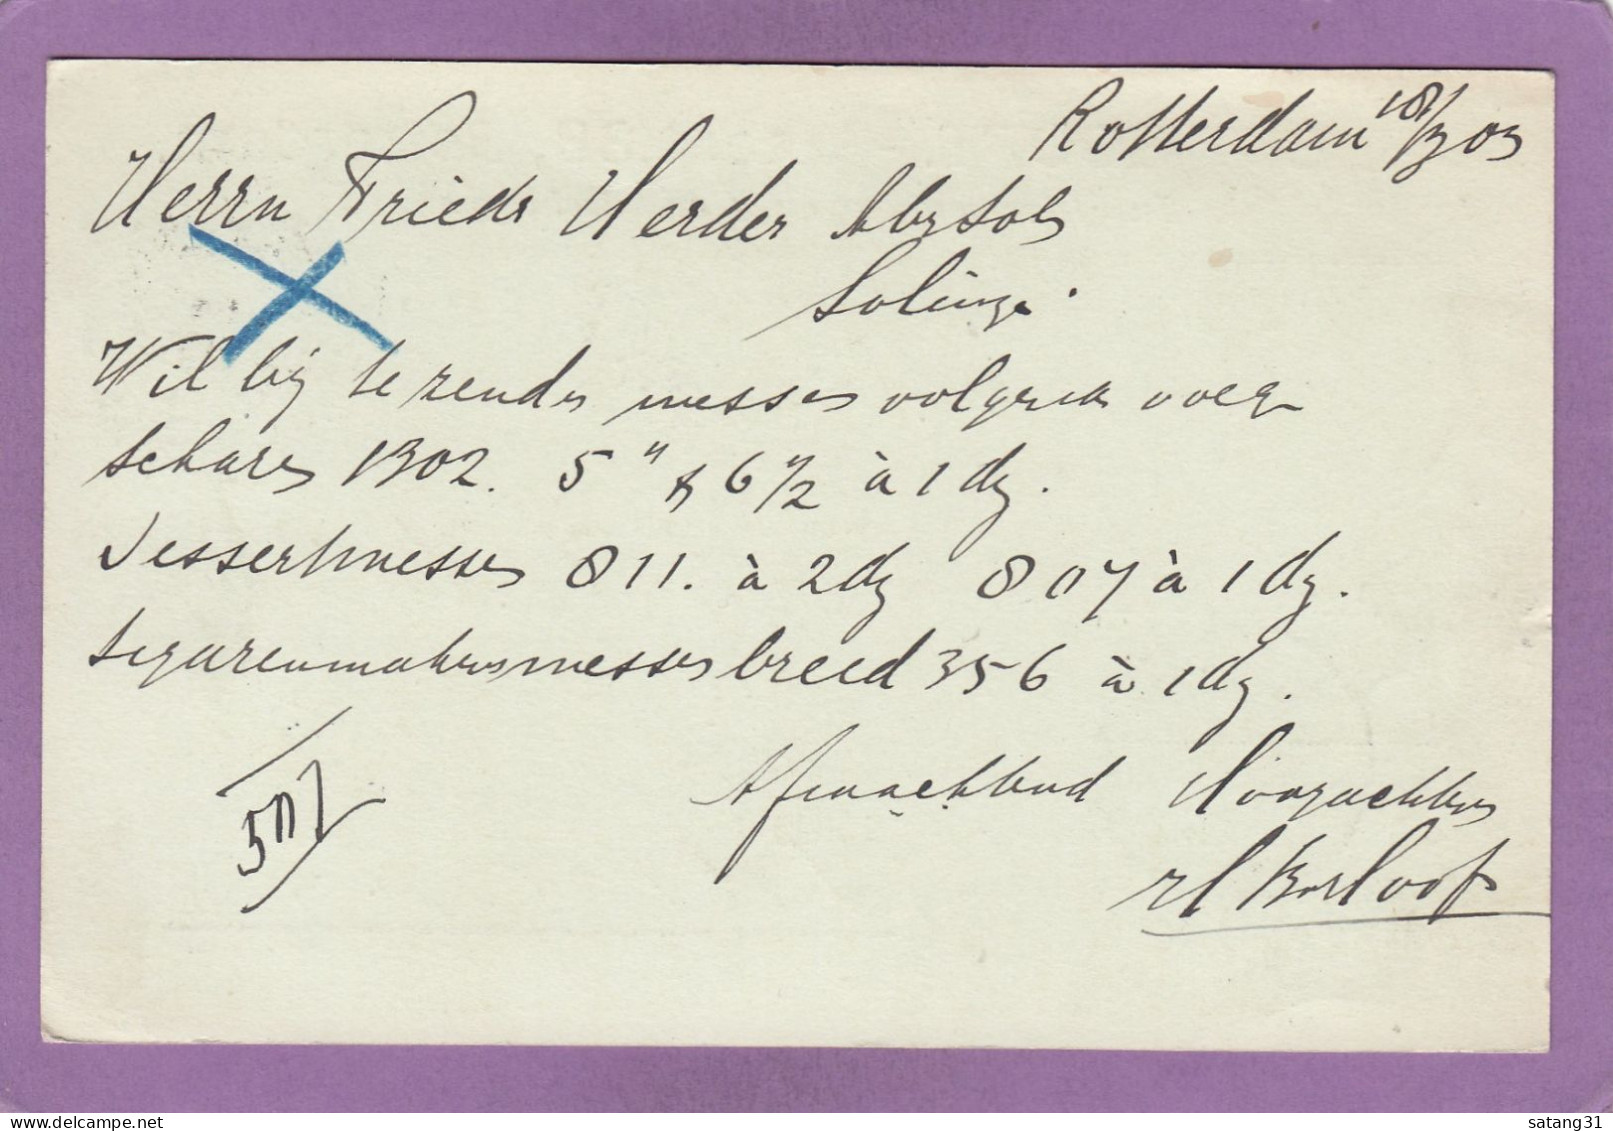 Rotterdam 18/3 03
Herrn Friedr Herder Abr Sohn
Solingen.
Wil bij te zenden messen volgende voeg
scharen 1302. 5" & 6"/2 à 1 dz.
Dessertmessen 811. à 2dz 807 à 1 dz.
sigarenmakersmessen breed 356 à 1 dz.
Hoogachtend
507
satang31